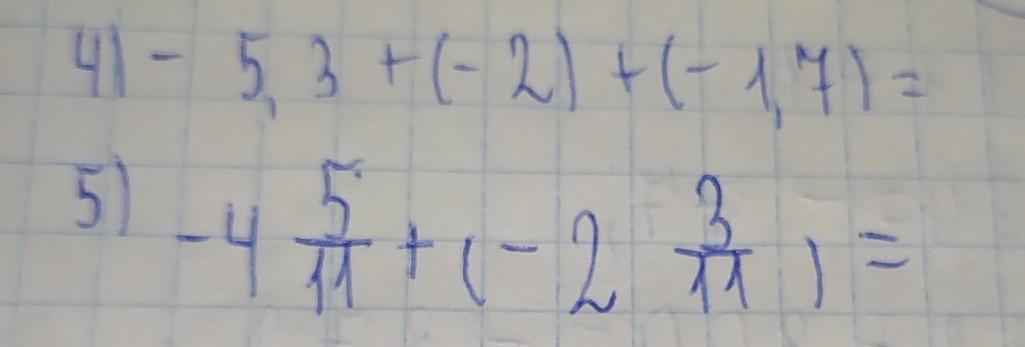 4) - 5,3 + (- 2) + (- 1,7) =
5) - 4 5/11 + (- 2 3/11) =